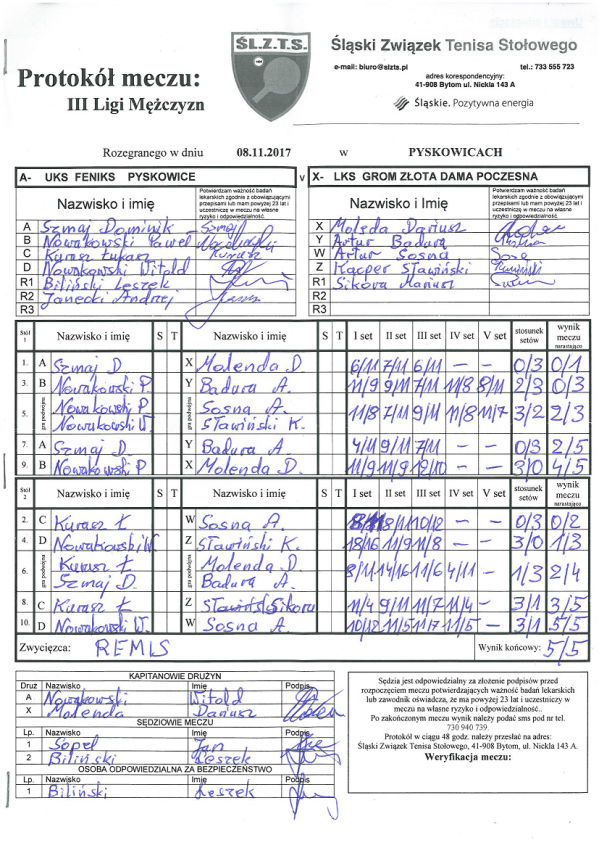 ŚL.Z.T.S.
Śląski Związek Tenisa Stołowego
e-mail: biuro@slzts.pl tel.: 733 555 723
adres korespondencyjny:
41-908 Bytom ul. Nickla 143 A
Śląskie. Pozytywna energia
Protokół meczu:
III Ligi Mężczyzn
Rozegranego w dniu 08.11.2017 w PYSKOWICACH
A- UKS FENIKS PYSKOWICE v X- LKS GROM ZŁOTA DAMA POCZESNA
Nazwisko i imię Potwierdzam ważność badań lekarskich zgodnie z obowiązującymi przepisami lub mam powyżej 23 lat i uczestniczę w meczu na własne ryzyko i odpowiedzialność. Nazwisko i imię Potwierdzam ważność badań lekarskich zgodnie z obowiązującymi przepisami lub mam powyżej 23 lat i uczestniczę w meczu na własne ryzyko i odpowiedzialność.
A Szmaj Dominik Szmaj X Dariusz
B Nowakowski Paweł Y Artur Badura
C Kurasz Łukasz Kurasz W Artur Sosna
D Nowakowski Witold Z Kacper Stawiński
R1 Biliński Leszek R1 Sikora Mariusz
R2 Janecki Andrzej R2
R3 R3
Stół 1 Nazwisko i imię S T Nazwisko i imię S T I set II set III set IV set V set stosunek setów wynik meczu narastająco
1. A Szmaj D. X Molenda D. 6/11 7/11 6/11 – – 0/3 0/1
3. B Nowakowski P. Y Badura A. 11/9 9/11 7/11 11/8 8/11 2/3 0/3
5. gra podwójna Nowakowski P. gra podwójna Sosna A. 11/8 7/11 9/11 11/8 11/7 3/2 2/3
Nowakowski W. Stawiński K.
7. A Szmaj D Y Badura A. 4/11 9/11 7/11 – – 0/3 2/5
9. B Nowakowski P X Molenda D. 11/9 11/9 12/10 – – 3/0 4/5
Stół 2 Nazwisko i imię S T Nazwisko i imię S T I set II set III set IV set V set stosunek setów wynik meczu narastająco
2. C Kurasz Ł W Sosna A. 8/11 8/11 10/12 – – 0/3 0/2
4. D Nowakowski W. Z Stawiński K. 18/16 11/9 11/8 – – 3/0 1/3
6. gra podwójna Kurasz Ł gra podwójna Molenda D. 8/11 14/16 11/6 4/11 – 1/3 2/4
Szmaj D. Badura A.
8. C Kurasz Ł Z Sikora 11/4 9/11 11/7 11/4 – 3/1 3/5
10. D Nowakowski W. W Sosna A. 10/12 11/5 11/7 11/5 – 3/1 5/5
Zwycięzca: REMIS Wynik końcowy: 5/5
KAPITANOWIE DRUŻYN
Druż Nazwisko Imię Podpis
A Nowakowski Witold
X Molenda Dariusz
SĘDZIOWIE MECZU
Lp. Nazwisko Imię Podpis
1 Sopel Jan
2 Biliński Leszek
OSOBA ODPOWIEDZIALNA ZA BEZPIECZEŃSTWO
Lp. Nazwisko Imię Podpis
1 Biliński Leszek
Sędzia jest odpowiedzialny za złożenie podpisów przed
rozpoczęciem meczu potwierdzających ważność badań lekarskich
lub zawodnik oświadcza, że ma powyżej 23 lat i uczestniczy w
meczu na własne ryzyko i odpowiedzialność..
Po zakończonym meczu wynik należy podać sms pod nr tel.
730 940 739.
Protokół w ciągu 48 godz. należy przesłać na adres:
Śląski Związek Tenisa Stołowego, 41-908 Bytom, ul. Nickla 143 A.
Weryfikacja meczu: